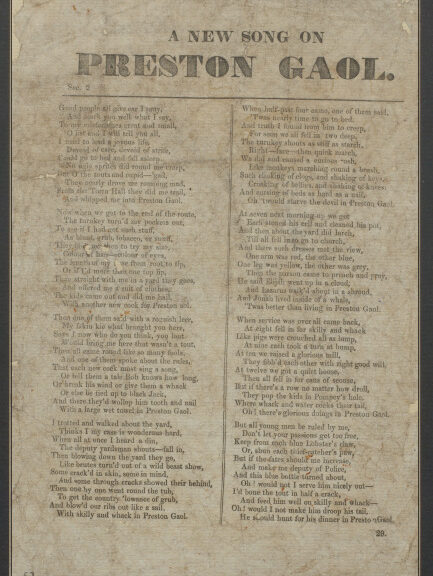 A NEW SONG ON
PRESTON GAOL.
Sec. 2
Good people all give ear I pray,
And mark you well what I say,
My misfortunes great and small,
O list and I will tell you all,
I used to lead a joyous life,
Devoid of care, devoid of strife,
Could go to bed and fall asleep
ugly sprites did round me creep,
But O the touts and
They nearly drove me running mad,
From the Town Hall they did me trail,
And whipped me into Preston Gaol.
Now when we got to the end of the route,
The turkey turn'd my pockets out,
To see if I had got such stuff,
As blunt, grub, tobacco, or snuff,
then to try my size
Colour of hair—colour of eyes,
The length of my from root to tip,
Or if I'd more than one top lip,
Then straight with me in a yard they goes,
And offered me a suit of clothes;
The kids came out and did me hail,
With another new cock for Preston
Then one of them said with a roguish leer,
My fakin kie what brought you here,
Says I now who do you think, you hunt
Would bring me here that wasn't a tout,
Then all came round like so many fools,
And one of them spoke about the rules,
That each new cock must sing a song,
Or tell them a tale Bob knows how long,
Or break his wind or give them a whack
Or else be tied up to black Jack,
And there they'd wollop him tooth and nail
With a large wet towel in Preston Gaol.
I trotted and walked about the yard,
Thinks I my case is wonderous hard,
When all at once I heard a din,
The deputy yardsman shouts—fall in,
Then blowing down the yard they go,
Like beasts turn'd out of a wild beast show,
Some crack'd in skin, some in mind,
And some through cracks showed their behind,
Then one by one went round the tub,
To get the country 'lowance of grub,
And blow'd our ribs out like a sail,
With skilly and whack in Preston Gaol.
When half-past four came, one of them said,
'Twas nearly time to go to bed,
And truth I found from him to creep,
For soon we all fell in two deep,
The turnkey shouts as stiff as starch,
Right—face—then quick march,
We did and caused a curious rush,
Like monkeys marching round a brush,
Such clinking of clogs, and shaking of keys,
Cranking of bellies, and shaking of knees;
And rattling of beds as hard as a nail,
Oh 'twould starve the devil in Preston Gaol.
At seven next morning up we got
Each stored his crib and cleaned his pot,
And then about the yard did lurch,
Till all fell in to go to church,
And there such dresses met the view,
One arm was red, the other blue,
One leg was yellow, the other was grey,
Then the parson came to preach and pray,
He said Elijah went up in a cloud,
And Lazarus walk'd about in a shroud,
And Jonah lived inside of a whale,
'Twas better than living in Preston Gaol.
When service was over all came back,
At eight fell in for skilly and whack
Like pigs were crouched all as lump,
At nine each took a turn at bump,
At ten we raised a glorious mill,
They fibb'd each other with right good will,
At twelve we got a quiet house,
Then all fell in for cans of scouse,
But if there's a row no matter how droll,
They pop the kids in Pompey's hole,
Where whack and water cocks their tail,
Oh! there's glorious doings in Preston Gaol.
But all young men be ruled by me,
Don't let your passions get too free,
Keep from each blue Lobster's claw,
Or, shun each thief-catcher's paw,
But if the dates should me increase,
And make me deputy of Police,
And this blue bottle turned about,
Oh! would not I serve him nicely out—
I'd bone the tout in half a crack,
And feed him well on skilly and whack—
Oh! would I not make him droop his tail,
He should hunt for his dinner in Preston Gaol.
29.